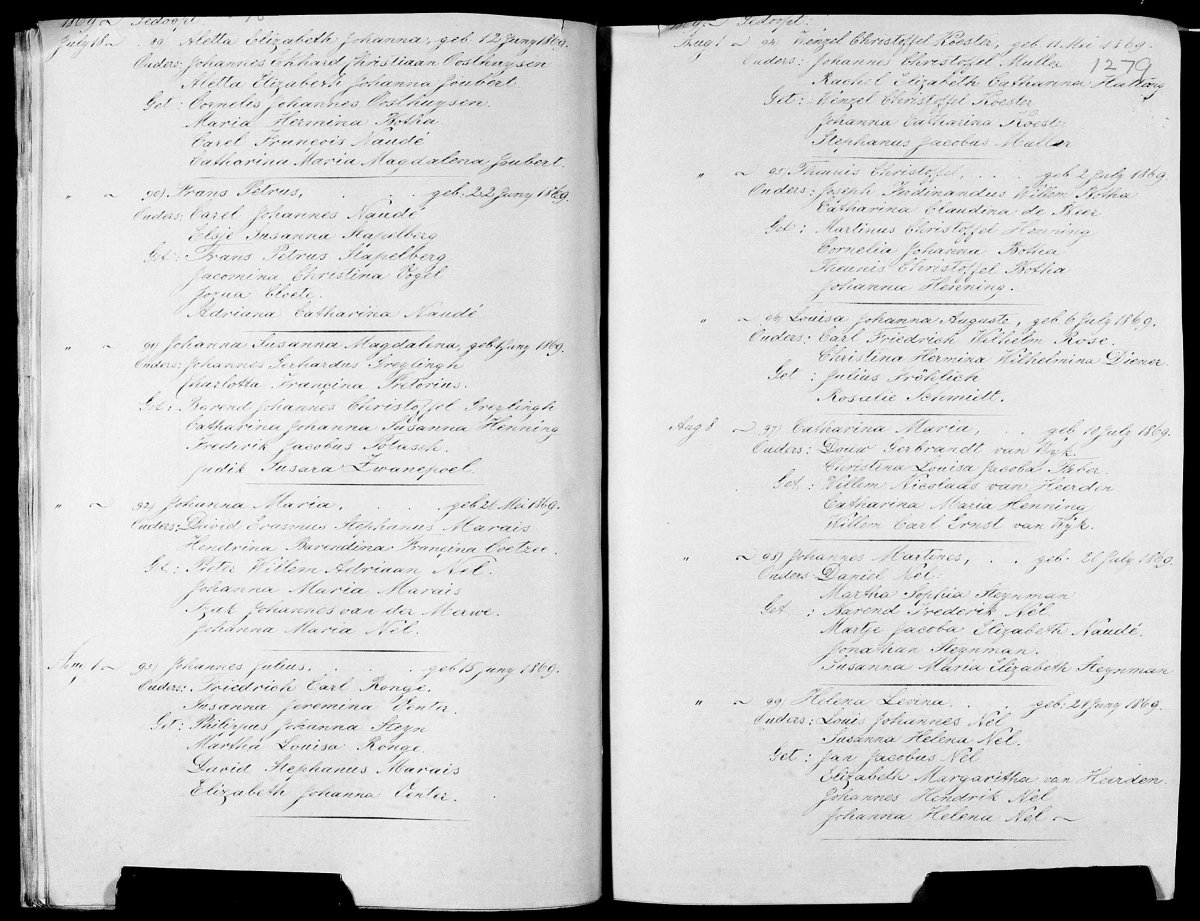 1869 Gedoopt
July 18 ~ 89) Aletta Elizabeth Johanna, geb. 12 Juny 1869.
Ouders: Johannes Erhard Christiaan Oosthuysen
Aletta Elizabeth Johanna Joubert.
Get: Cornelis Johannes Oosthuysen.
Maria Hermina Botha
Carel François Naudé
Catharina Maria Magdalena Joubert.
" ~ 90) Frans Petrus, . . geb. 22 Juny 1869.
Ouders: Carel Johannes Naudé
Elsje Susanna Stapelberg
Get: Frans Petrus Stapelberg
Jacomina Christina Vogel
Jozua Cloete.
Adriana Catharina Naudé
" ~ 91) Johanna Susanna Magdalena, geb 1 Juny 1869.
Ouders: Johannes Gerhardus Greylingh
Charlotta Francina Pretorius.
Get: Barend Johannes Christoffel Greylingh
Catharina Johanna Susanna Henning
Frederik Jacobus
Judik Susara Zwanepoel.
" ~ 92) Johanna Maria, . . geb 21 Mei 1869.
Ouders: David Erasmus Stephanus Marais
Hendrina Barendina Francina Coetzee.
Get: Pieter Willem Adriaan Nel.
Johanna Maria Marais
Izak Johannes van der Merwe.
Johanna Maria Nel.
Aug 1 ~ 93) Johannes Julius, . . . geb 15 Juny 1869.
Ouders: Friedrich Carl Ronge.
Susanna Jeremina Venter.
Get: Philippus Johanna Steyn
Martha Louisa Ronge.
David Stephanus Marais
Elizabeth Johanna Venter.
1869. Gedoopt:
Aug 1 ~ 94) Wenzel Christoffel Koester, geb. 11 Mei 1869.
Ouders: Johannes Christoffel Muller 1279
Rachel Elizabeth Catharina Hatting
Get: Wenzel Christoffel Koester
Johanna Catharina Koester
Stephanus Jacobus Muller
" ~ 95) Theunis Christoffel, . . . geb 2 July 1869
Ouders: Joseph Ferdinandus Willem Botha
Catharina Claudina de Beer
Get: Martinus Christoffel Henning
Cornelia Johanna Botha
Theunis Christoffel Botha
Johanna Henning.
" ~ 96) Louisa Johanna Auguste, geb. 6 July 1869.
Ouders: Carl Friedrich Wilhelm Rose.
Christina Hermina Wilhelmina Diener.
Get: Julius Fröhlich
Rosalie Schmidt.
Aug 8 ~ 97) Catharina Maria, . . geb 10 July 1869.
Ouders: Douw Gerbrandt van Wyk.
Christina Louisa Jacoba Faber.
Get: Willem Nicolaas van Heerden
Catharina Maria Henning
Willem Carl Ernst van Wyk.
" ~ 98) Johannes Martines, . . geb. 20 July 1869.
Ouders: Daniel Nel:
Martha Sophia Steynman
Get: Barend Frederik Nel
Martje Jacoba Elizabeth Naudé.
Jonathan Steynman.
Susanna Maria Elizabeth Steynman
" ~ 99) Helena Levina, . . geb. 21 Juny 1869.
Ouders: Louis Johannes Nel
Susanna Helena Nel.
Get: Jan Jacobus Nel
Elizabeth Margaritha van Heerden.
Johannes Hendrik Nel
Johanna Helena Nel ~